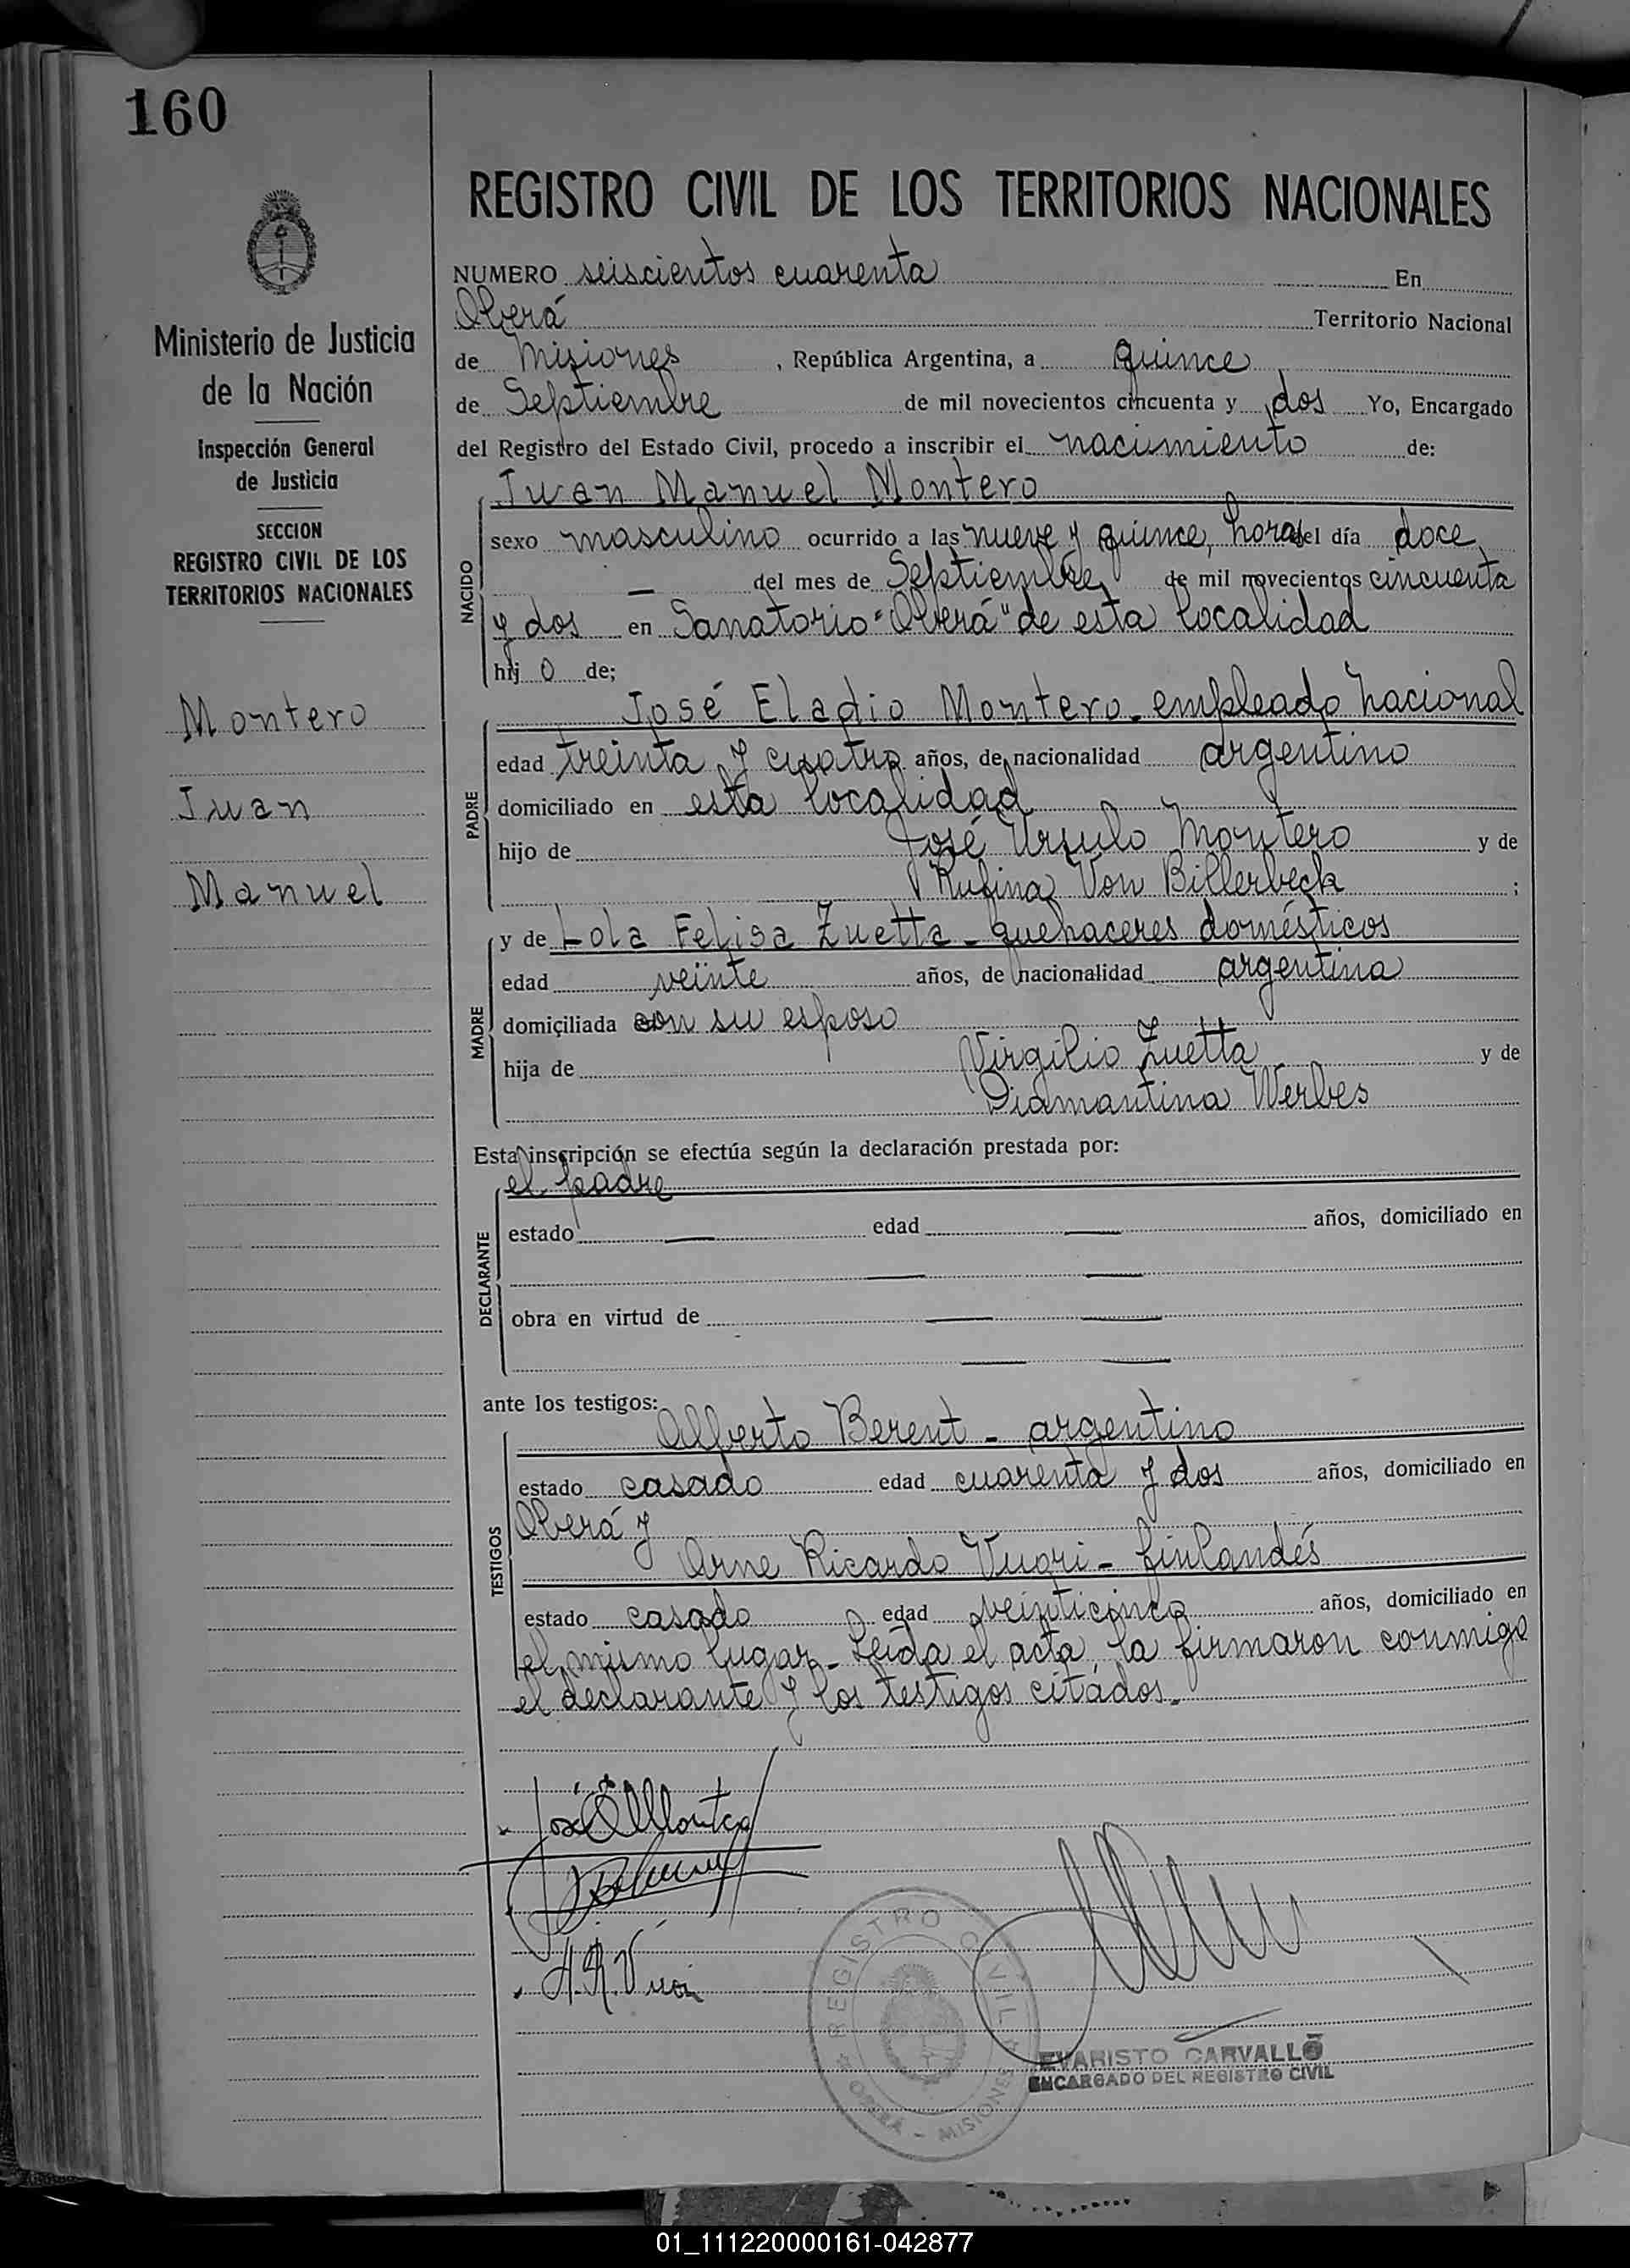 160
REGISTRO CIVIL DE LOS TERRITORIOS NACIONALES
Ministerio de Justicia
de la Nación
Inspección General
de Justicia
SECCION
REGISTRO CIVIL DE LOS
TERRITORIOS NACIONALES
Montero
Juan
Manuel
NUMERO seiscientos cuarenta En
Oberá Territorio Nacional
de Misiones, República Argentina, a quince
de Septiembre de mil novecientos cincuenta y dos Yo, Encargado
del Registro del Estado Civil, procedo a inscribir el nacimiento de:
NACIDO
Juan Manuel Montero
sexo masculino ocurrido a las nueve y quince, horas del día doce
— del mes de Septiembre de mil novecientos cincuenta
y dos en Sanatorio "Oberá" de esta localidad
hij o de;
PADRE
José Eladio Montero - empleado nacional
edad treinta y cuatro años, de nacionalidad argentino
domiciliado en esta localidad
hijo de José Ursulo Montero y de
Rufina Von Billerbeck ;
MADRE
y de Lola Felisa Zuetta - quehaceres domésticos
edad veinte años, de nacionalidad argentina
domiciliada con su esposo
hija de Virgilio Zuetta y de
Diamantina Werbes
Esta inscripción se efectúa según la declaración prestada por:
DECLARANTE
el padre
estado — edad — años, domiciliado en
— —
obra en virtud de — —
— —
ante los testigos:
TESTIGOS
Alberto Berent - argentino
estado casado edad cuarenta y dos años, domiciliado en
Oberá y
Arne Ricardo Vuori - finlandés
estado casado edad veinticinco años, domiciliado en
el mismo lugar - Leída el acta, la firmaron conmigo
el declarante y los testigos citados.-
José E Montero
A.R. Vuori
REGISTRO CIVIL
OBERÁ - MISIONES
EVARISTO CARVALLO
ENCARGADO DEL REGISTRO CIVIL
01_111220000161-042877